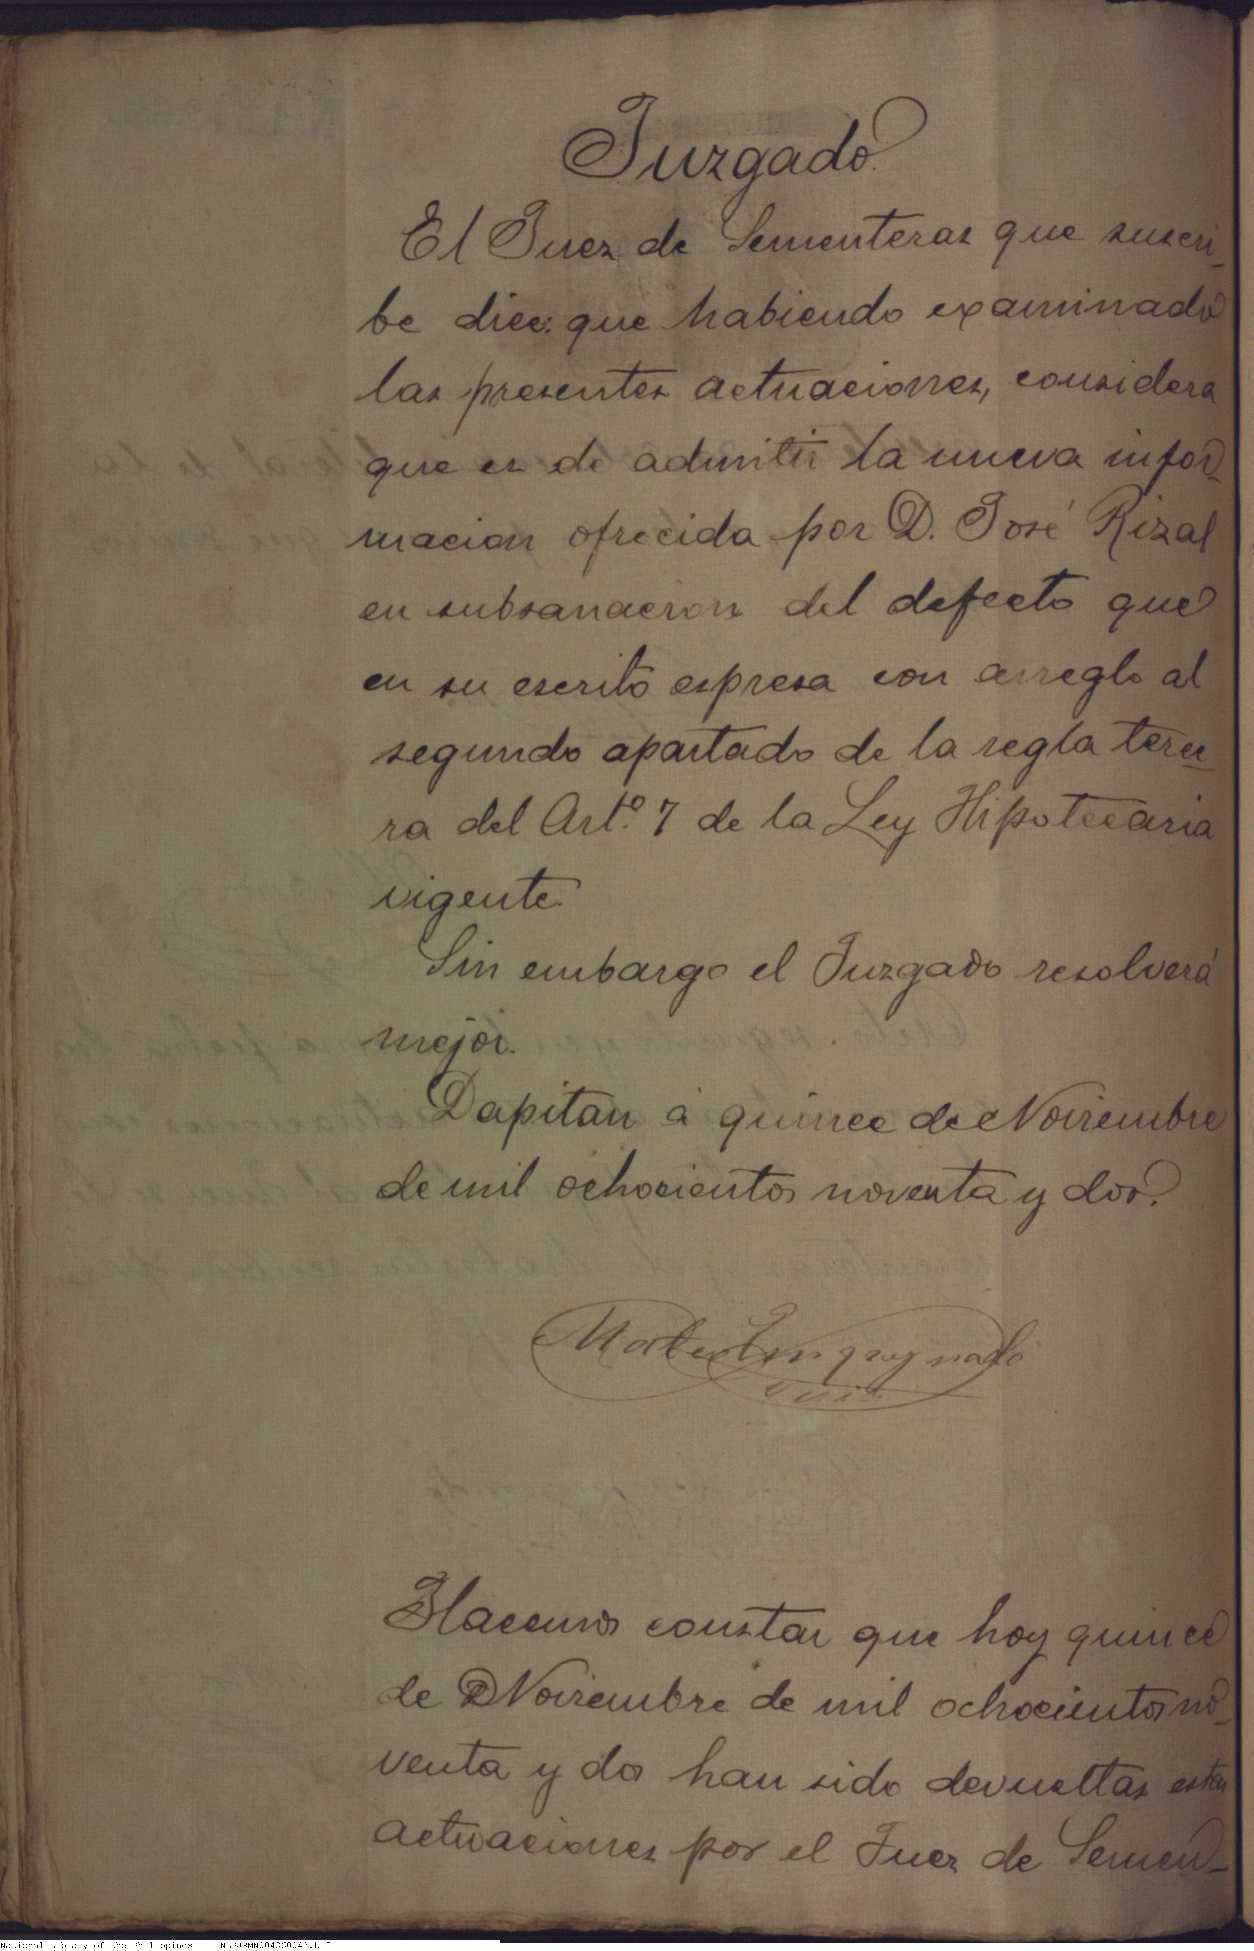 Juzgado
El Juez de Sementeras que suscri-
be dice: que habiendo examinado
las presentes actuaciones, considera
que es de admitir la nueva infor-
macion ofrecida por D. José Rizal
en subsanacion del defecto que
en su escrito espresa con arreglo al
segundo apartado de la regla terce-
ra del Art.º 7 de la Ley Hipotecaria
vigente.
Sin embargo el Juzgado resolverá
mejor.
Dapitan á quince de Noviembre
de mil ochocientos noventa y dos.
Mateo
Hacemos constar que hoy quince
de Noviembre de mil ochocientos no-
venta y dos han sido devueltas estas
actuaciones por el Juez de Semen-
National Library of the Philippines